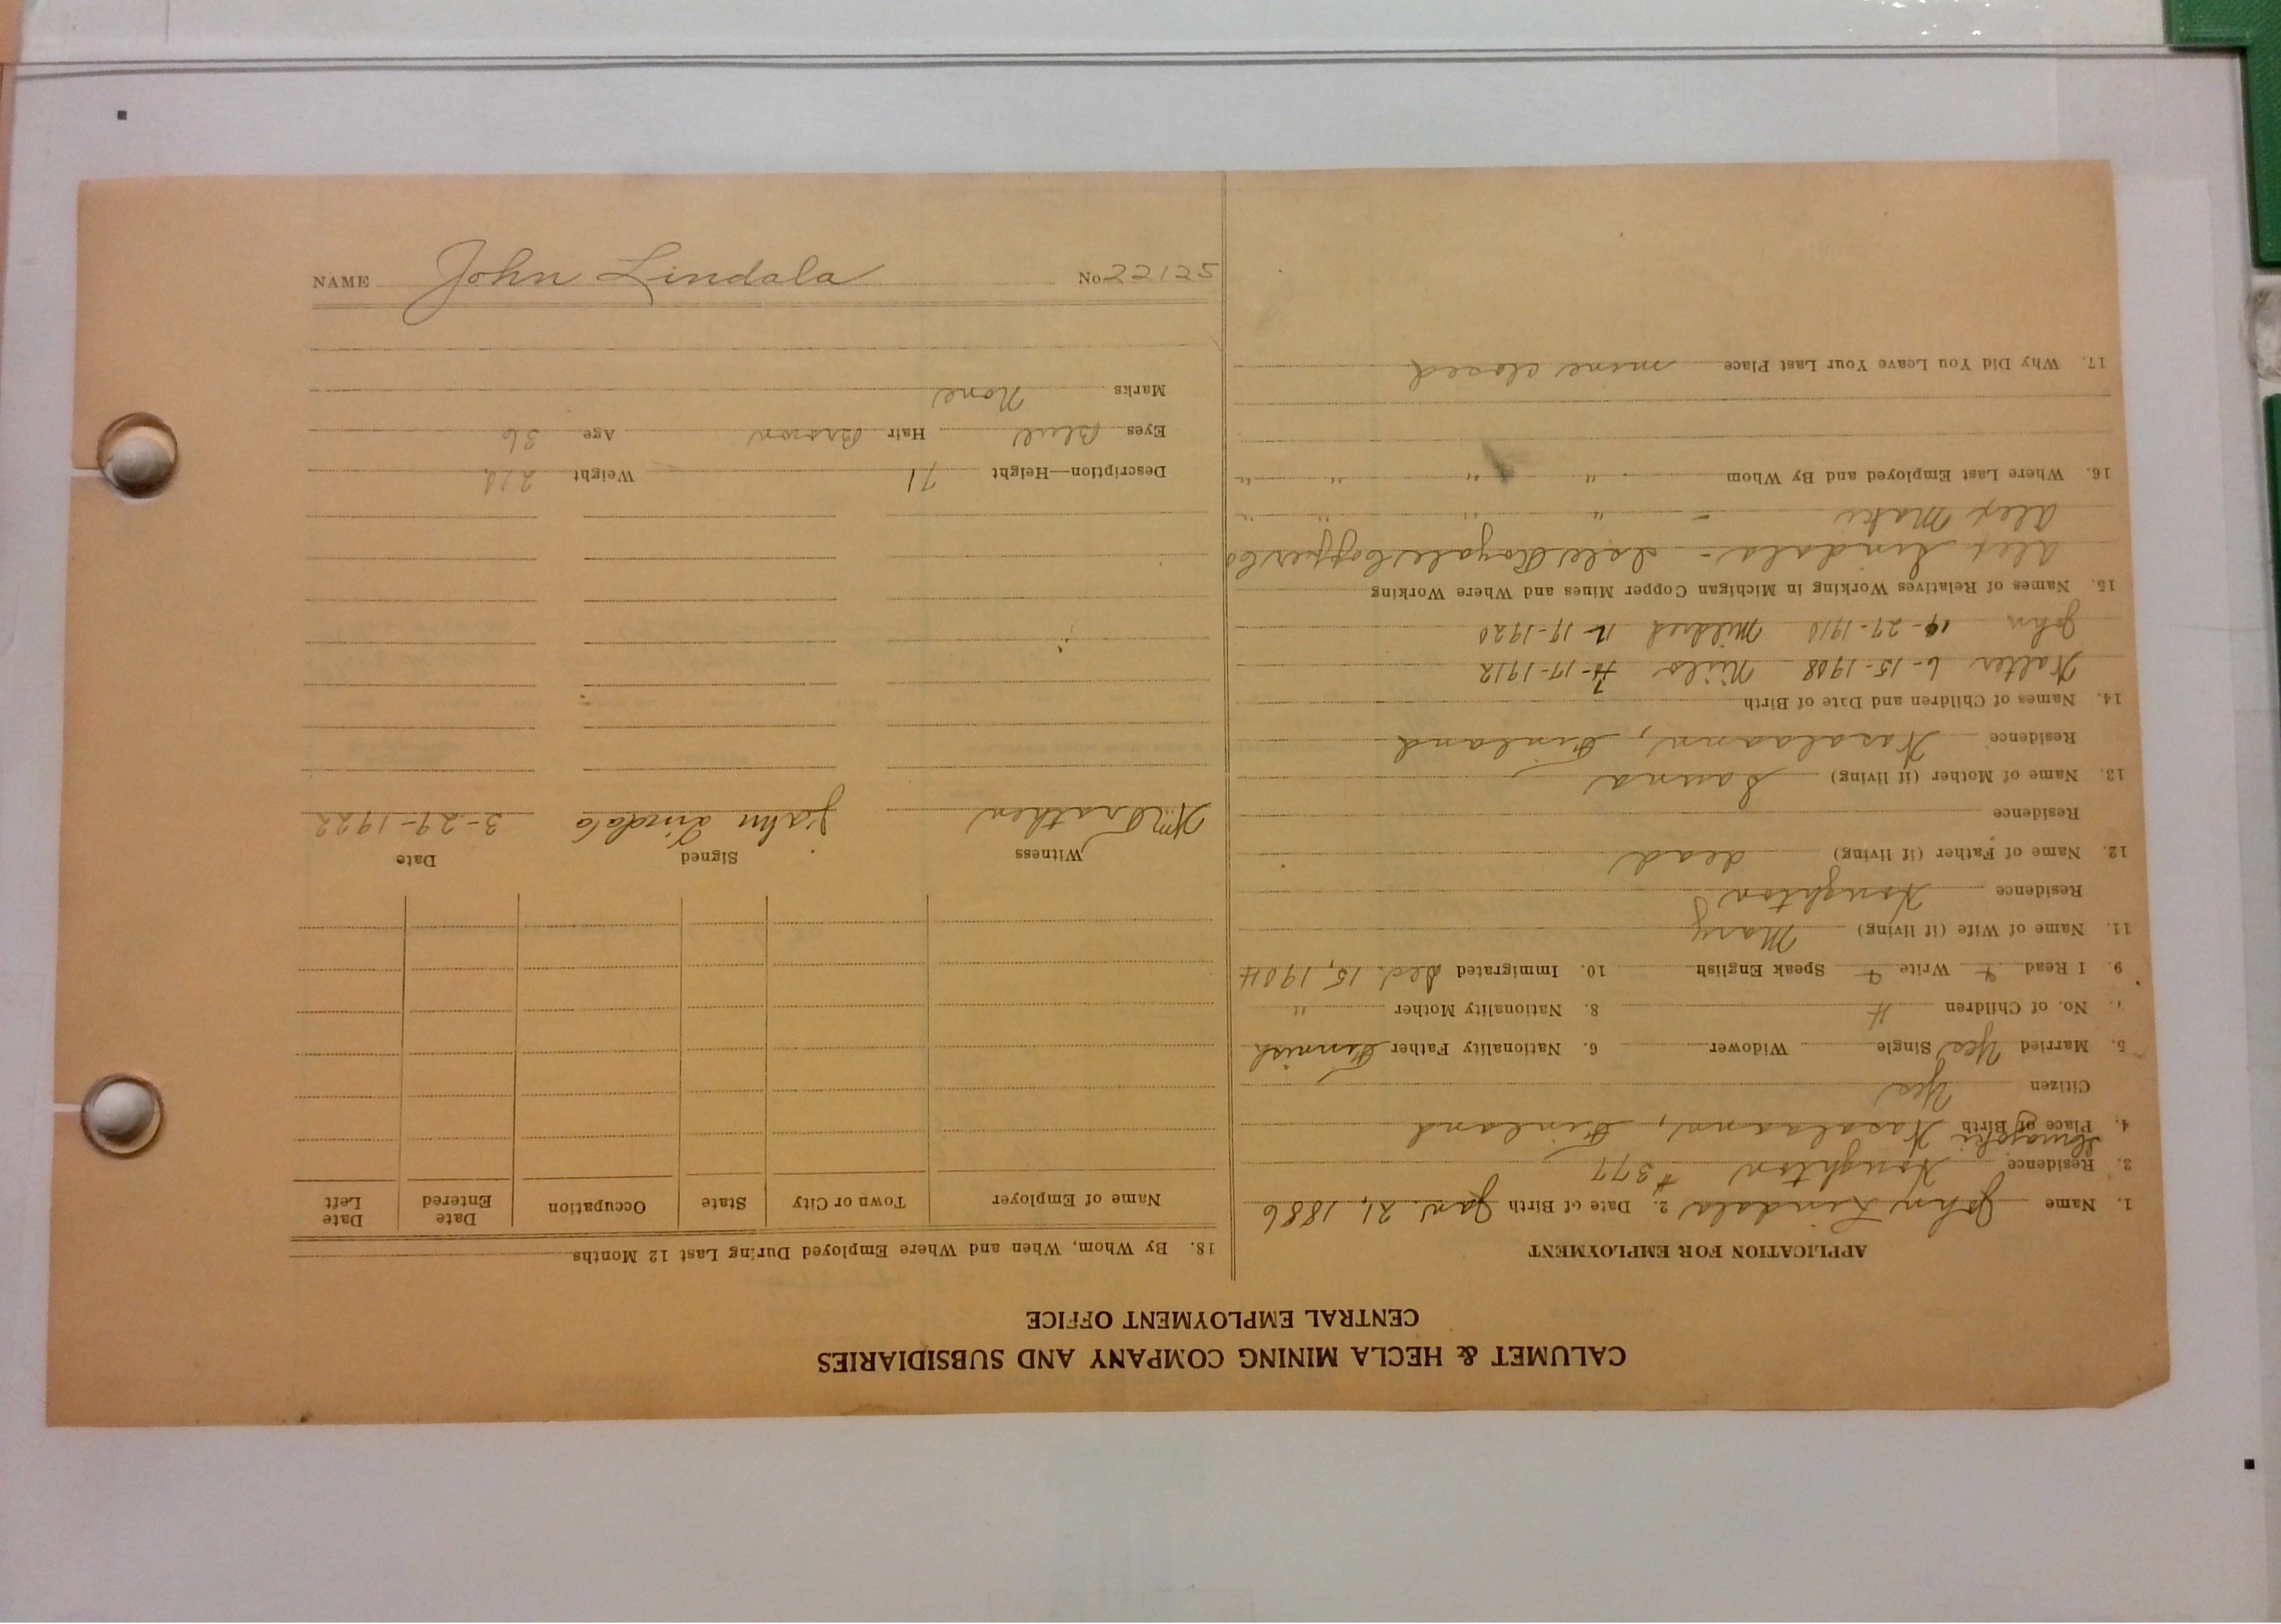 CALUMET & HECLA MINING COMPANY AND SUBSIDIARIES
CENTRAL EMPLOYMENT OFFICE
APPLICATION FOR EMPLOYMENT
1. Name John Lindala 2. Date of Birth Jan. 21, 1886
3. Residence Houghton #377
4. Place of Birth Wasalaani, Finland
Citizen Yes
5. Married Yes Single Widower 6. Nationality Father Finnish
7. No. of Children 4 8. Nationality Mother "
9. I Read Write Speak English 10. Immigrated Dec. 15, 1904
11. Name of Wife (if living) Mary
Residence Houghton
12. Name of Father (if living) dead
Residence
13. Name of Mother (if living) Sanna
Residence Wasalaani, Finland
14. Names of Children and Date of Birth
Walter 6-15-1908 Niilo 7-17-1912
John 9-27-1910 Mildred 12-17-1920
15. Names of Relatives Working in Michigan Copper Mines and Where Working
Alex Lindala - Isle Royale Copper Co
Alex Maki - " " " "
16. Where Last Employed and By Whom " " " "
17. Why Did You Leave Your Last Place mine closed
18. By Whom, When and Where Employed During Last 12 Months
Name of Employer Town or City State Occupation Date Entered Date Left
Witness Signed Date
John Lindala 3-29-1922
Description—Height 71 Weight 210
Eyes Blue Hair Brown Age 36
Marks None
NAME John Lindala No 22125